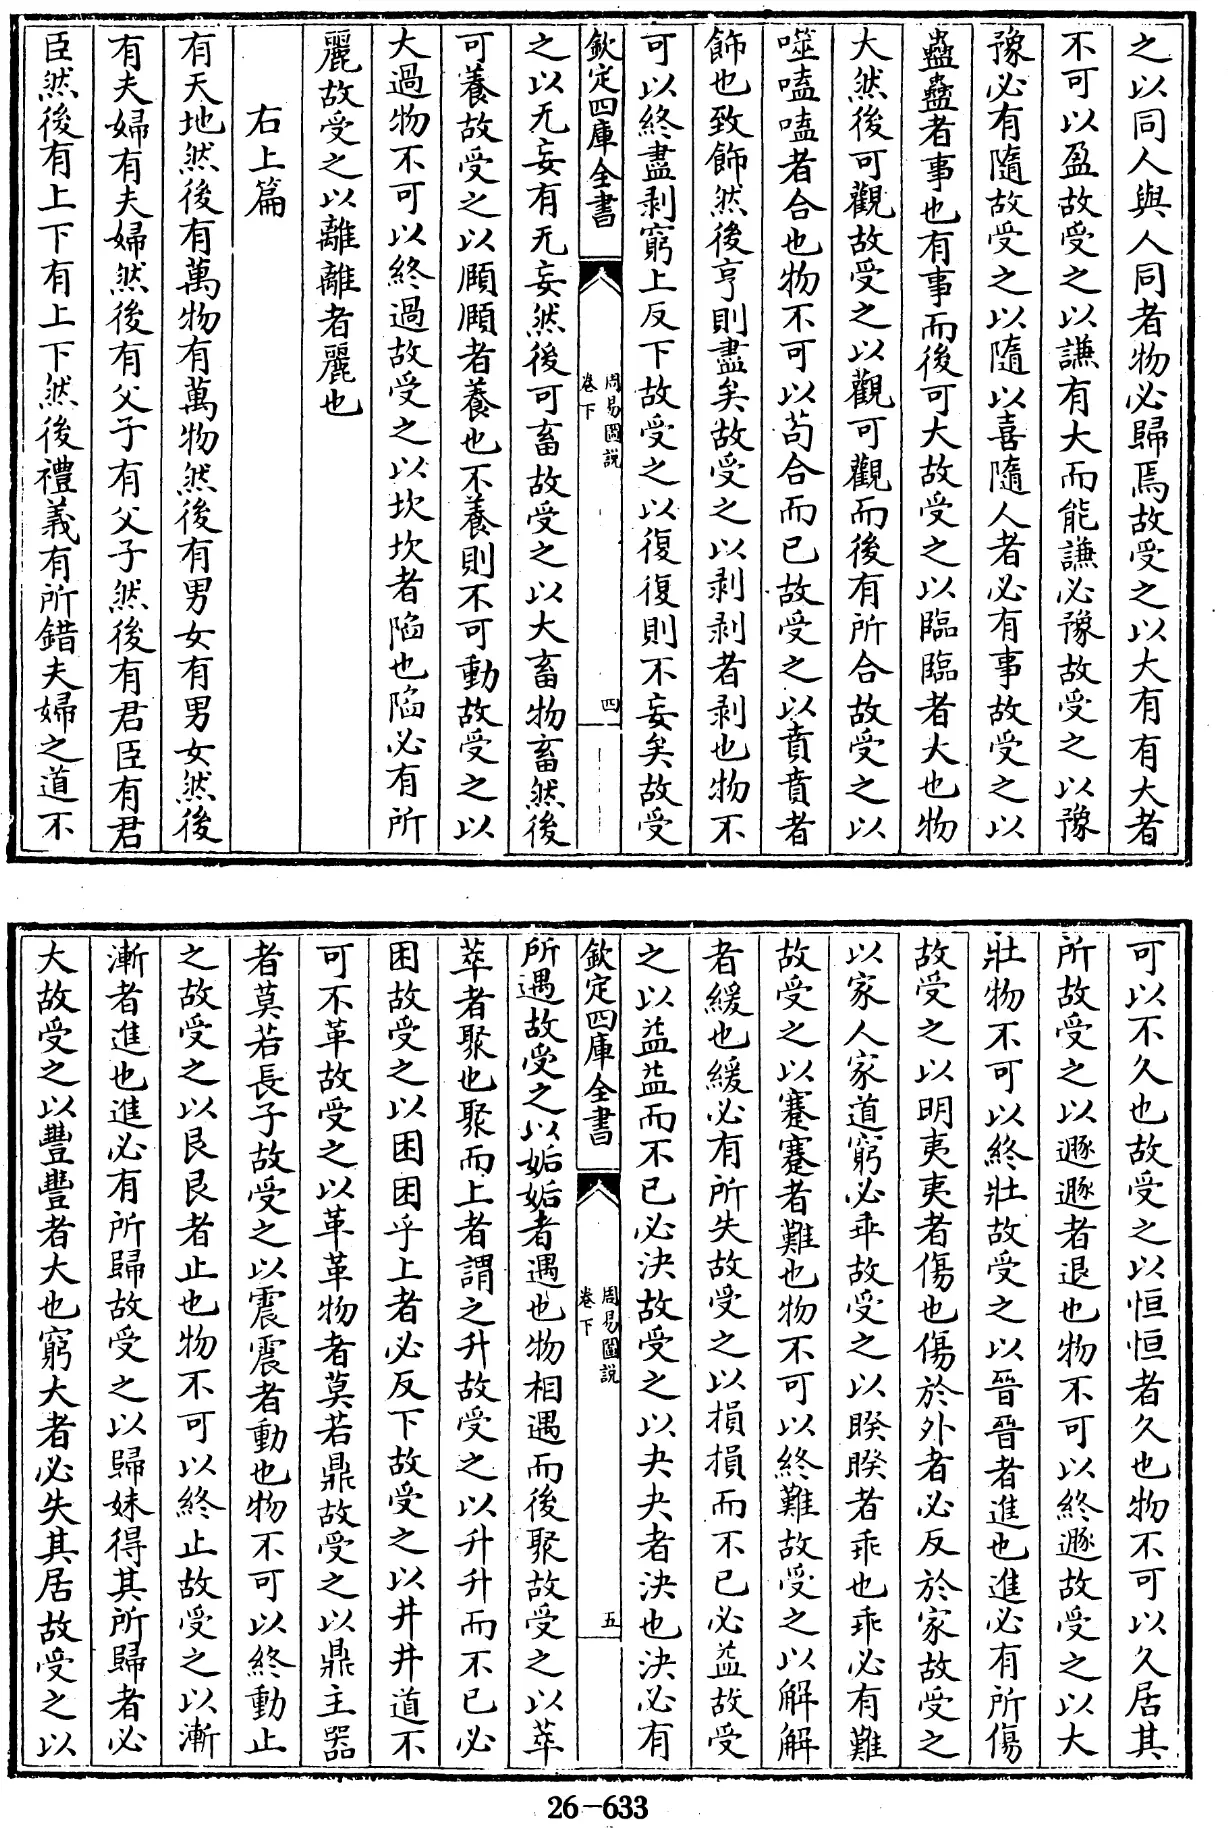 之以同人與人同者物必歸焉故受之以大有有大者
不可以盈故受之以謙有大而能謙必豫故受之以豫
豫必有隨故受之以隨以喜隨人者必有事故受之以
蠱蠱者事也有事而後可大故受之以臨臨者大也物
大然後可觀故受之以觀可觀而後有所合故受之以
噬嗑嗑者合也物不可以苟合而已故受之以賁賁者
飾也致飾然後亨則盡矣故受之以剥剥者剥也物不
可以終盡剥窮上反下故受之以復復則不妄矣故受
欽定四庫全書
周易圖説
卷下
四
之以无妄有无妄然後可畜故受之以大畜物畜然後
可養故受之以頤頤者養也不養則不可動故受之以
大過物不可以終過故受之以坎坎者陷也陷必有所
麗故受之以離離者麗也
右上篇
有天地然後有萬物有萬物然後有男女有男女然後
有夫婦有夫婦然後有父子有父子然後有君臣有君
臣然後有上下有上下然後禮義有所錯夫婦之道不
可以不久也故受之以恒恒者久也物不可以久居其
所故受之以遯遯者退也物不可以終遯故受之以大
壯物不可以終壯故受之以晉晉者進也進必有所傷
故受之以明夷夷者傷也傷於外者必反於家故受之
以家人家道窮必乖故受之以睽睽者乖也乖必有難
故受之以蹇蹇者難也物不可以終難故受之以解解
者緩也緩必有所失故受之以損損而不已必益故受
之以益益而不已必決故受之以夬夬者決也決必有
欽定四庫全書
周易圖説
卷下
五
所遇故受之以姤姤者遇也物相遇而後聚故受之以萃
萃者聚也聚而上者謂之升故受之以升升而不已必
困故受之以困困乎上者必反下故受之以井井道不
可不革故受之以革革物者莫若鼎故受之以鼎主器
者莫若長子故受之以震震者動也物不可以終動止
之故受之以艮艮者止也物不可以終止故受之以漸
漸者進也進必有所歸故受之以歸妹得其所歸者必
大故受之以豐豐者大也窮大者必失其居故受之以
26-633